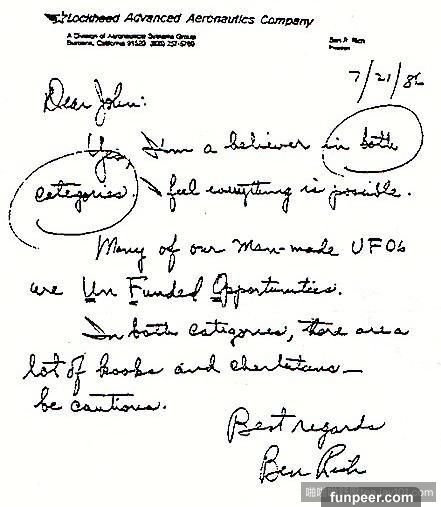 Lockheed Advanced Aeronautics Company
A Division of Aeronautical Systems Group
Burbank, California 91520
Ben R. Rich
President
7/21/86
Dear John:
Yes, I'm a believer in both
categories. I feel everything is possible.
Many of our Man-made UFO's
are Un Funded Opportunities.
In both categories, there are a
lot of kooks and charlatans —
be cautious.
Best regards
Ben Rich
funpeer.com